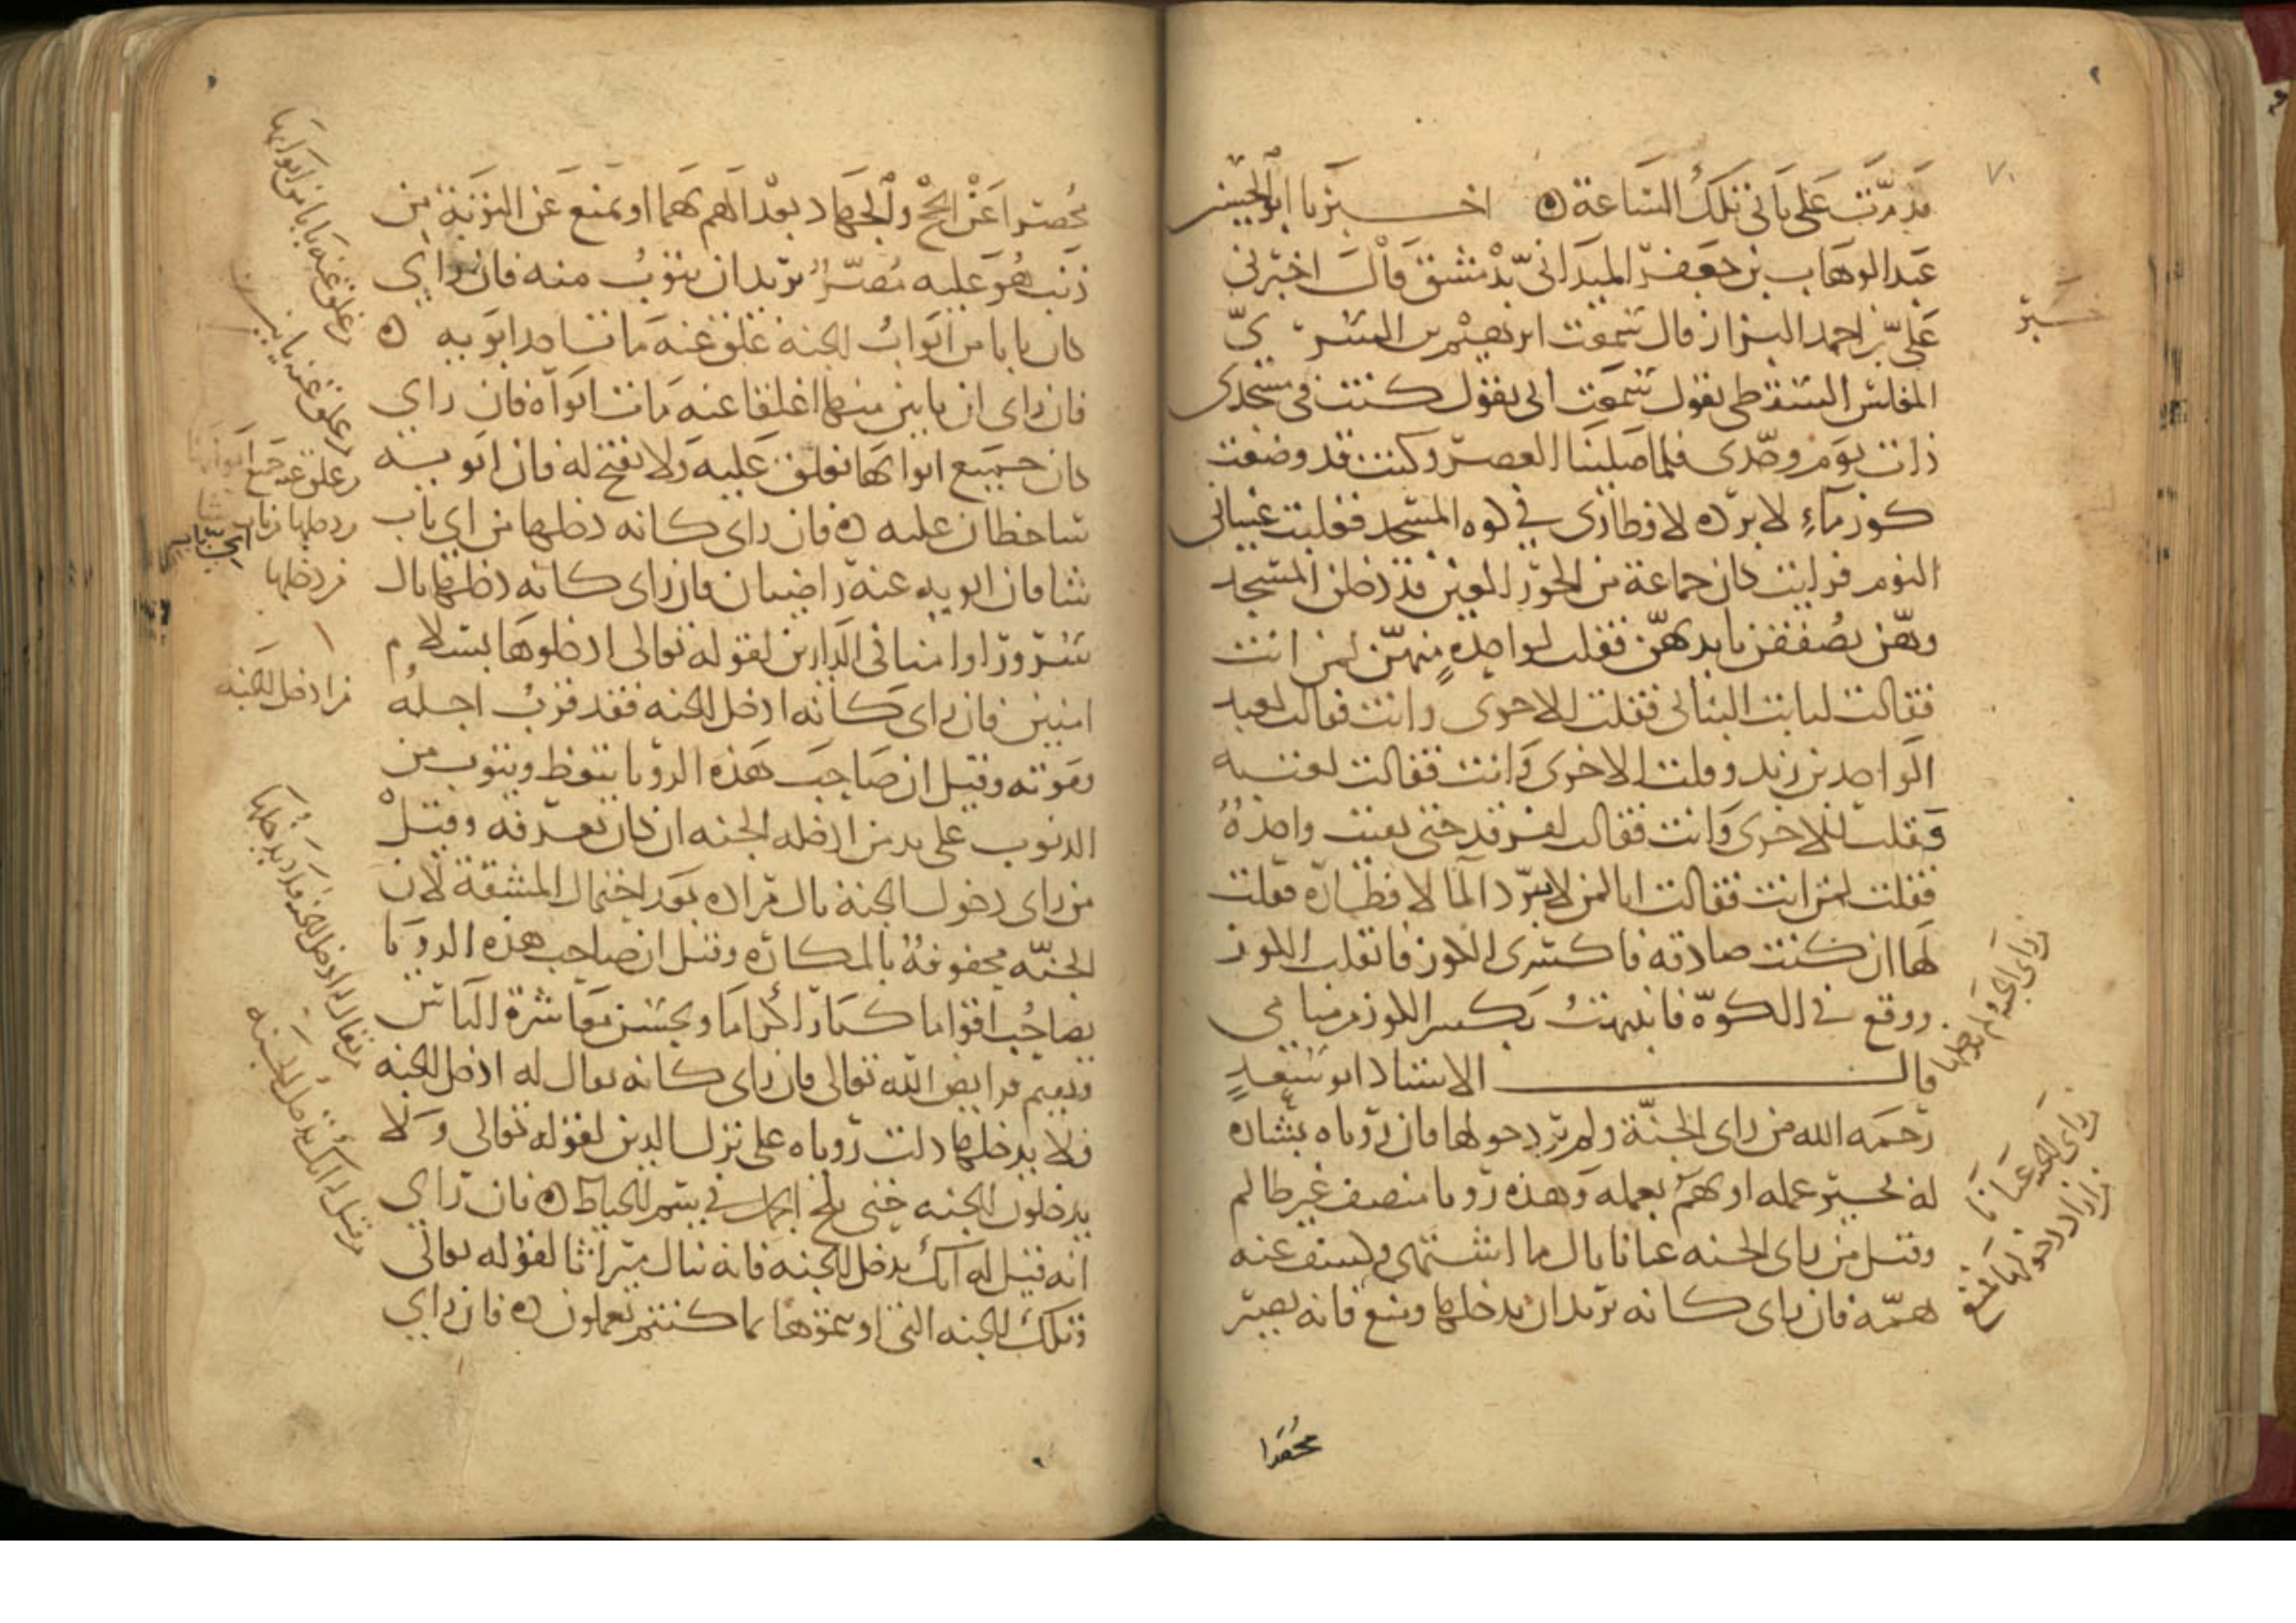 قد مرّت على بابي تلك الساعة ه اخبرنا ابو الحسين
عبد الوهاب بن جعفر الميداني بدمشق قال اخبرني
علي بن احمد البزاز قال سمعت ابرهيم بن السري
المغلس السقطي يقول سمعت ابي يقول كنت في مسجدي
ذات يوم وحدي فلما صلينا العصر وكنت قد وضعت
كوز ماء لابرده لافطاري في كوه المسجد فغلبت عيناني
النوم فرايت كان جماعة من الحور العين قد دخلن المسجد
وهن يصفقن بايديهن فقلت لواحدة منهن لمن انت
فقالت لثابت البناني فقلت للاخرى وانت فقالت لعبد
الواحد بن زيد وقلت للاخرى وانت فقالت لعتبه
فقلت للاخرى وانت فقالت لفرقد حتى بقيت واحدة
فقلت لمن انت فقالت انا لمن لا يبرد الما لافطاره فقلت
لها ان كنت صادقه فاكسري الكوز فانقلب الكوز
ووقع في الكوة فانتبهت بكسر الكوز من منامي
قال الاستاذ ابو سعد
رحمه الله من راى الجنة ولم ير دخولها فان روياه بشاره
له بخير عمله او يهم بعمله وهذه رويا منصف غير ظالم
وقيل من راى الجنه عيانا نال ما اشتهى وكشف عنه
همه فان راى كانه يريد ان يدخلها ومنع فانه يصير
محصرا
خبر
راى الجنة ولم يدخلها
راى الجنه عيانا
من اراد دخولها فمنع
محصرا عن الحج والجهاد بعد الهم بهما او يمنع عن التوبة من
ذنب هو عليه مصر يريد ان يتوب منه فان راي
كان بابا من ابواب الجنة غلق عنه مات احد ابويه ه
فان راى ان بابين منها اغلقا عنه مات ابواه فان راي
كان جميع ابوابها تغلق عليه ولا تفتح له فان ابويه
ساخطان عليه ه فان راى كانه دخلها من اي باب
شا فان ابويه عنه راضيان فان راى كانه دخلها نال
سرورا وامنا في الدارين لقوله تعالى ادخلوها بسلام
امنين فان راى كانه ادخل الجنه فقد قرب اجله
وموته وقيل ان صاحب هذه الرويا يتعظ ويتوب من
الذنوب على يد من ادخله الجنه ان كان يعرفه وقيل
من راى دخول الجنة نال مراده بعد احتمال المشقة لان
الجنة محفوفة بالمكاره وقيل ان صاحب هذه الرويا
يصاحب اقواما كبارا كراما ويحسن معاشرة الناس
ويقيم فرايض الله تعالى فان راى كانه يقال له ادخل الجنه
فلا يدخلها دلت روياه على ترك الدين لقوله تعالى ولا
يدخلون الجنه حتى يلج الجمل في سم الخياط ه فان راي
انه قيل له انك تدخل الجنه فانه ينال ميراثا لقوله تعالى
وتلك الجنه التي اورثتموها بما كنتم تعملون ه فان راي
من غلق عنه بابا من ابوابها
من غلق عنه بابين
من غلق عنه جميع ابوابها
من دخلها من اي باب
من دخلها
من ادخل الجنه
من يقال له ادخل الجنة فلا يدخلها
من قيل له انك تدخل الجنه